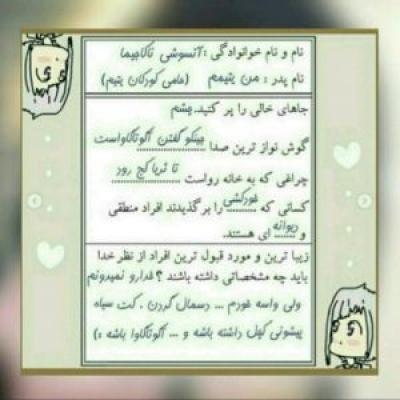 نام و نام خوانوادگی : آتسوشی ناکاجیما
نام پدر : من یتیمم (حامی کودکان یتیم)
جاهای خالی را پر کنید. چشم
گوش نواز ترین صدا بینگو گفتن آکوتاگاواست
چراغی که به خانه رواست تا ثریا کج رود
کسانی که خودکشی را بر گذیدند افراد منطقی
و دیوانه ای هستند.
زیبا ترین و مورد قبول ترین افراد از نظر خدا
باید چه مشخصاتی داشته باشند ؟ خدارو نمیدونم
ولی واسه خودم ... دسمال گردن . کت سیاه
پیشونی کچل داشته باشه و ... آکوتاگاوا باشه :)